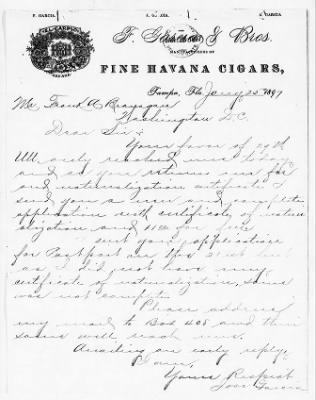 F. GARCIA.
GARCIA
F. Garcia & Bros.
MANUFACTURERS OF
FINE HAVANA CIGARS,
Tampa, Fla. Jany 25 1897
Mr. Frank A Branagan
Washington D.C.
Dear Sir:
Your favor of 20th
reached me today
and as you returns
and naturalization certificate I
send you a new and complete
application with certificate of natur
alization and
sent you applications
for Passport on the 21st
as I did not have my
certificate of naturalization, same
was not complete
Please address
my mail to Box 405 and then
same will reach me.
Awaiting an early reply,
I am,
Yours Respect
Jose Garcia